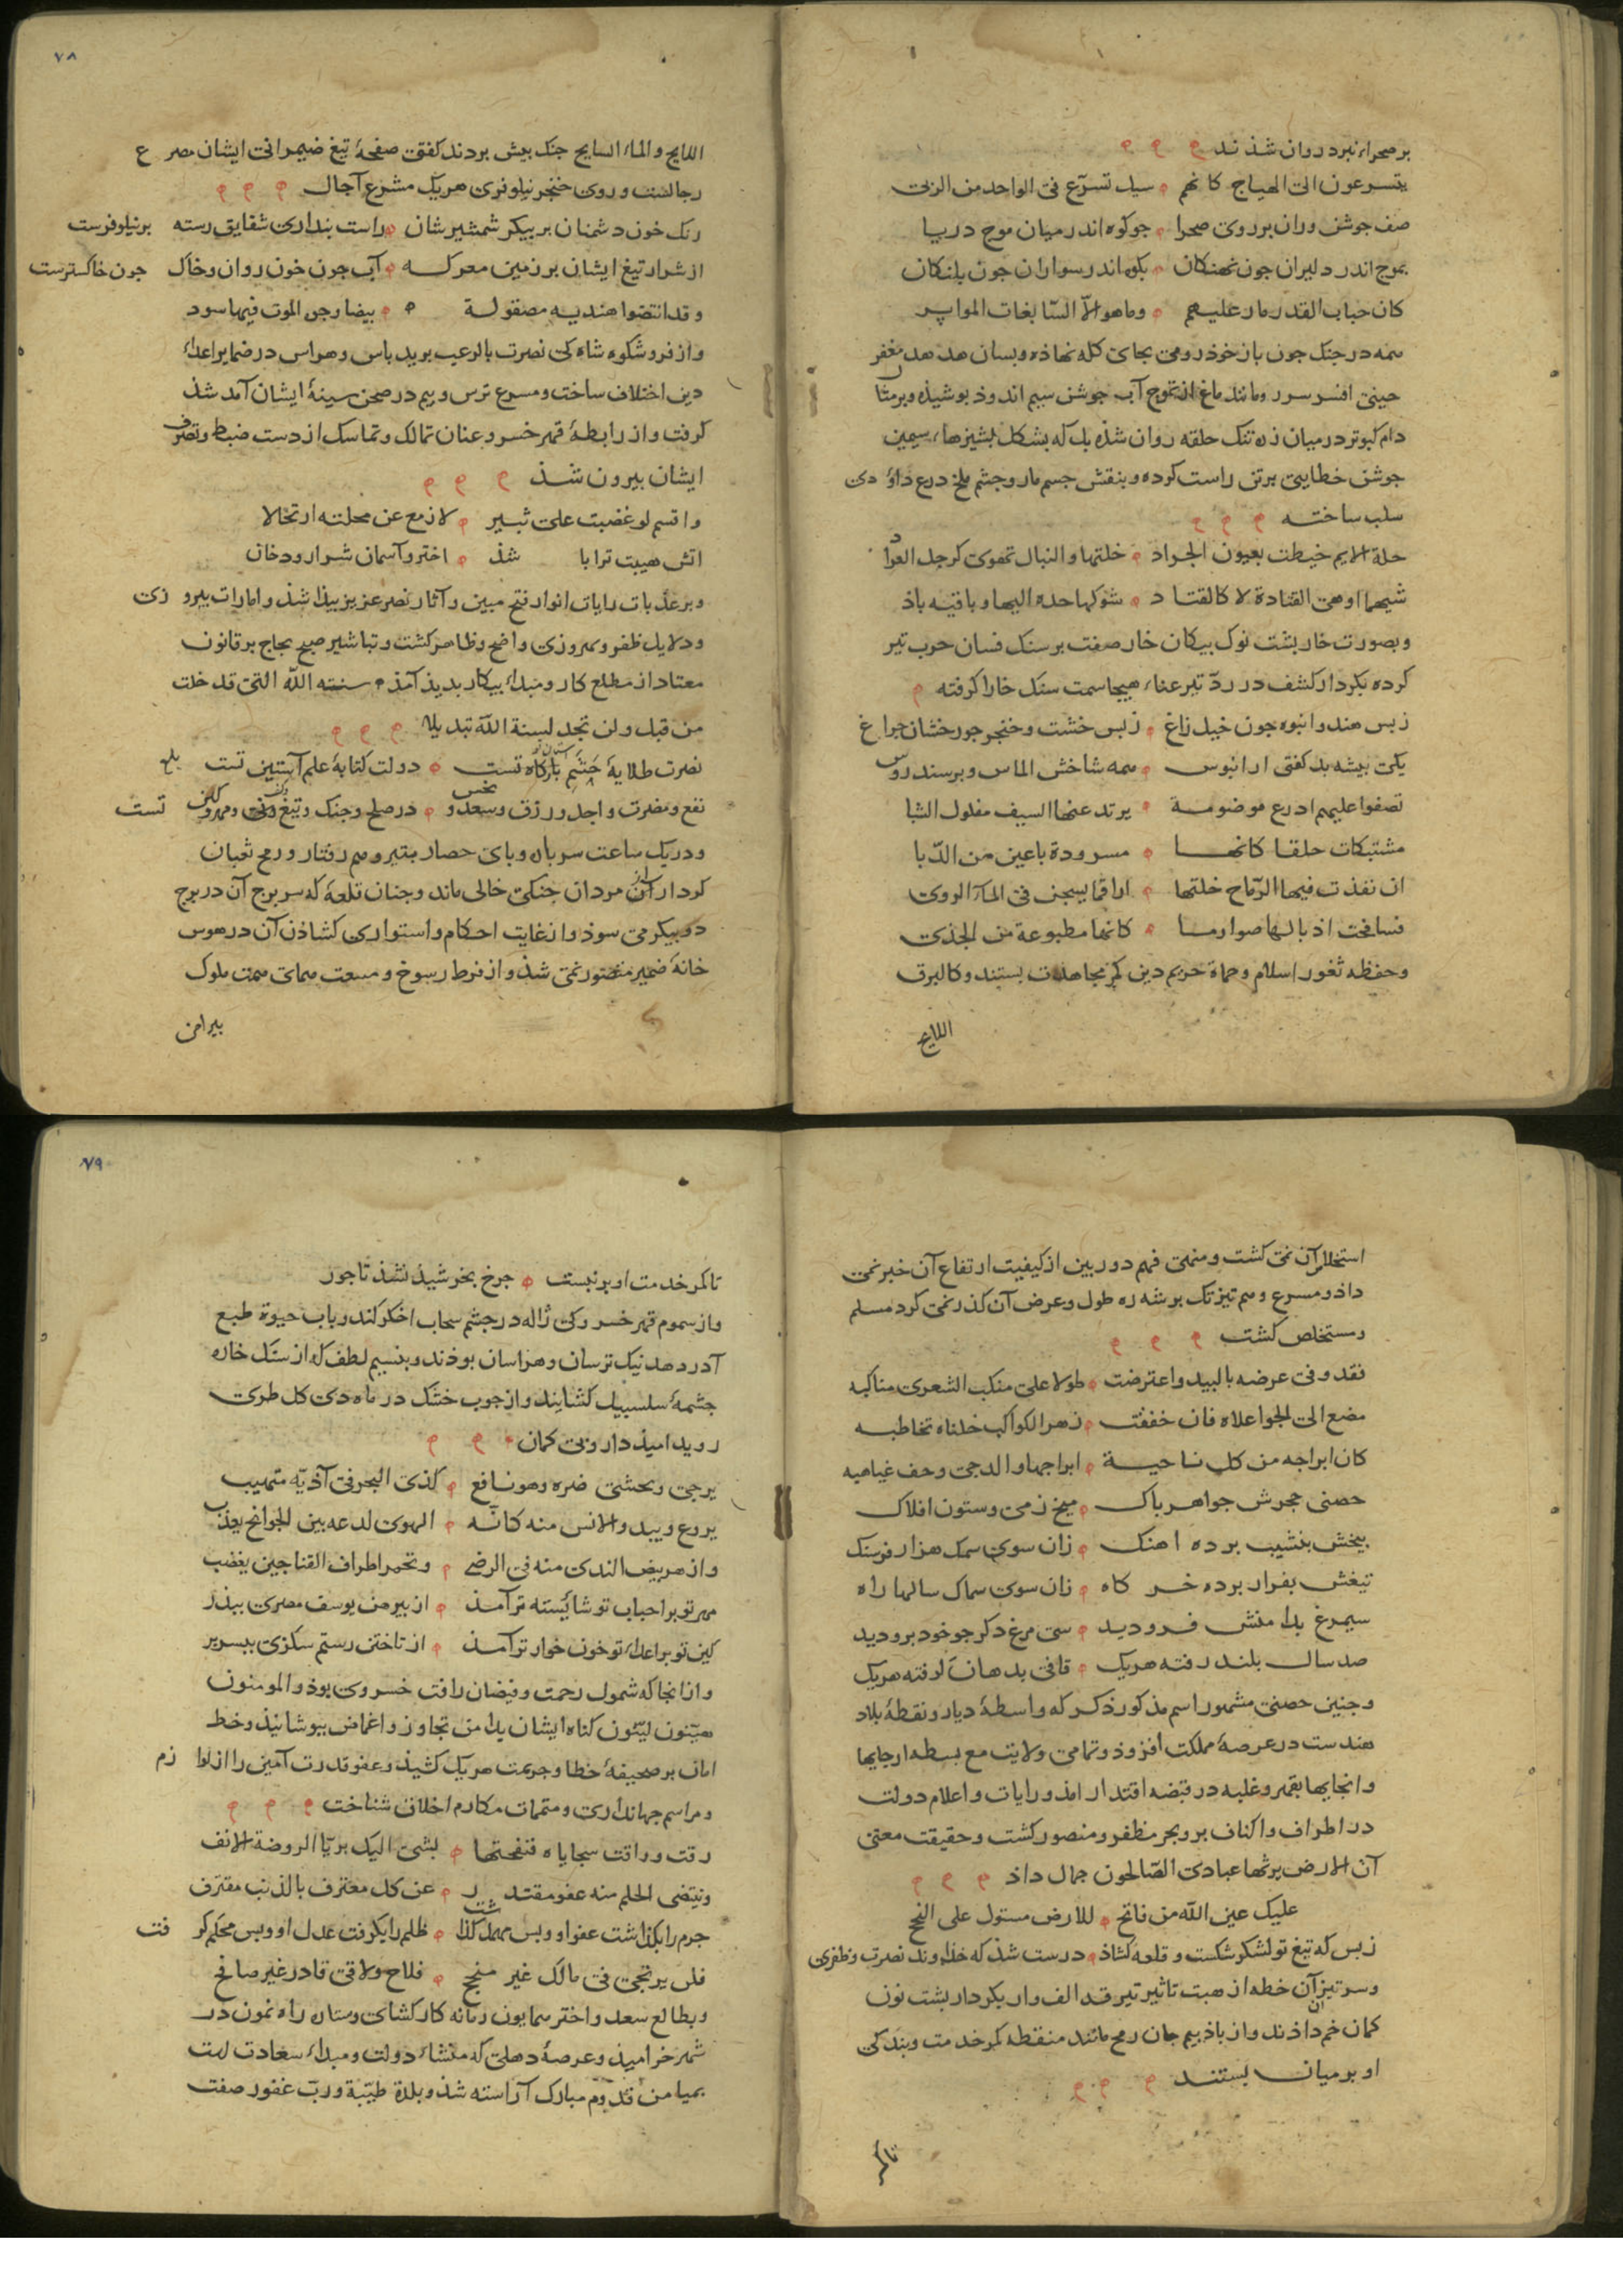 بر صحراء نبرد روان شذند
یتسرعون الی الهیاج کانهم سیل تسرّع فی الواحد من الربی
صف جوشن وران بر روی صحرا جو کوه اندر میان موج دریا
بموج اندر دلیران جون نهنکان بکوه اندر سواران جون بلنکان
کان حباب القدر مار علیهم وما هو الّا السّابغات المواپر
همه در جنک جون باز خوذ رومی بجای کله نهاذه و بسان هدهد مغفر
جینی افسر سر و مانند ماغ از تموج آب جوشن سیم اندوذ بوشیذه و بر مثا
دام کبوتر در میان زه تنک حلقه روان شذه بل که بشکل بشیزهاء سیمین
جوشن خطایی بر تن راست کرده و بنقش جسم مار و جشم ملخ درع داؤدی
سلب ساخته
حلة الایم خیطت بعیون الجراد خلتها والنبال تهوی کرجل العوا
شبهها اوهی القتادة لا کالقتاد شوکها حده الیها و باقیه باذ
و بصورت خاربشت نوک بیکان خار صفت بر سنک فسان حرب تیر
کرده بکردار کشف در ردّ تیر عناء هیجا سمت سنک خارا کرفته
ز بس هندو انبوه جون خیل زاغ ز بس خشت و خنجر جو رخشان جراغ
یکی بیشه بد کفتی از انبوس همه شاخش الماس و بر سندروس
تصفوا علیهم ادرع موضونة یرتد عنها السیف مفلول الشبا
مشتبکات حلقا کانها مسرودة باعین من الدّبا
ان نفذت فیها الرّماح خلتها اراقما یسبحن فی الماء الروی
فسافحت اذبالها صوارما کانها مطبوعة من الجذی
و حفظه ثغور اسلام و حماة حریم دین کمر مجاهدت بستند و کالبرق
اللایح
۷۸
اللایح والماء السایح جنک بیش بردند کفتی صفحهٔ تیغ ضیمرانی ایشان مصرع
رجالست و روی خنجر نیلوفری هر یک مشرع آجال
رنک خون دشمنان بر بیکر شمشیرشان راست بنداری شقایق رسته بر نیلوفرست
از شرار تیغ ایشان بر زمین معرکه آب جون خون روان و خاک جون خاکسترست
و قد انتضوا هندیه مصقولة بیضا وجن الموت فیها سود
و از فر و شکوه شاه کی نصرت بالرعب بوید باس و هراس در ضمایر اعداء
دین اختلاف ساخت و مسرع ترس و بیم در صحن سینهٔ ایشان آمد شذ
کرفت و از رابطهٔ قهر خسرو عنان تمالک و تماسک از دست ضبط و تصرف
ایشان بیرون شذ
واقسم لو غضبت علی ثبیر لازمع عن محلته ارتحالا
اتش هیبت ترا با شذ اختر و آسمان شرار و دخان
و بر عذبات رایات انوار فتح مبین و آثار نصر عزیز بیذا شذ و امارات بیروزی
و دلایل ظفر و بهروزی واضح و ظاهر کشت و تباشیر صبح نجاح بر قانون
معتاد از مطلع کار و مبداء بیکار بدیذ آمذ سنة اللّه التی قد خلت
من قبل ولن تجد لسنة اللّه تبدیلا
نصرت طلایهٔ حشم بارکاه تست دولت کتابهٔ علم آستین تست
نفع و مضرت و اجل و رزق و سعد و نحس در صلح و جنک و تیغ و مهر و کین تست
و در یک ساعت سرباره و بای حصار بتبر و سم رفتار و رمح ثعبان
کردار از آن مردان جنکی خالی ماند و جنان قلعهٔ که سر برج آن در برج
دو بیکر می سوذ و از غایت احکام و استواری کشاذن آن در هوس
خانهٔ ضمیر متصور نمی شذ و از فرط رسوخ و مسعت همای همت ملوک
بیرامن
استخلاص آن نمی کشت و منهی فهم دوربین از کیفیت ارتفاع آن خبر نمی
داذ و مسرع وهم تیزتک بر شه ره طول و عرض آن کذر نمی کرد مسلم
و مستخلص کشت
فقد وفی عرضه بالبید واعترضت طولا علی منکب الشعری مناکبه
مضع الی الجو اعلاه فان خففت زهر الکواکب خلناه تخاطبه
کان ابراجه من کل ناحیة ابراجها والدجی وحف غیاهبه
حصنی حجرش جواهر باک میخ زمی و ستون افلاک
بیخش بنشیب برده اهنک زان سوی سمک هزار فرسنک
تیغش بفراز برده خرکاه زان سوی سماک سالها راه
سیمرغ بدامنش فرو دید سی مرغ دکر جو خود برو دید
صد سال بلند رفته هر یک قافی بدهان کرفته هر یک
و جنین حصنی مشهور اسم مذکور ذکر که واسطهٔ دیار و نقطهٔ بلاد
هندست در عرصهٔ مملکت افزوذ و تمامی ولایت مع بسطه ارجایها
و انحایها بقهر و غلبه در قبضه اقتدار امذ و رایات و اعلام دولت
در اطراف و اکناف بر و بحر مظفر و منصور کشت و حقیقت معنی
آن الارض یرثها عبادی الصّالحون جمال داذ
علیک عین اللّه من فاتح للارض مستول علی النجح
ز بس که تیغ تو لشکر شکست و قلعه کشاذ درست شذ که خداوند نصرت و ظفری
و سر تیز آن خطه از هبت تاثیر تیر قد الف وار بکردار بشت نون
کمان خم داذند و از باذ بیم جان رمح مانند منقطه کمر خدمت و بندکی
او بر میان بستند
تا کمر
۷۹
تا کمر خدمت او بر نبست جرخ بخرشیذ نشذ تاجور
و از سموم قهر خسرو کی ژاله در جشم سحاب اخکر کند و باب حیوة طبع
آذر دهد نیک ترسان و هراسان بوذند و بنسیم لطف که از سنک خاره
جشمهٔ سلسبیل کشایند و از جوب خشک در ماه دی کل طری
روید امیذوار و بی کمان
یرجی و یخشی ضره وهو نافع کذی البحر فی آذیّه متهیب
یروع ویبد والانس منه کانّه الهوی لدعه بین الجوانح یعذب
واز هر بیض الندی منه فی الرضی وتحمر اطراف القنا حین یغضب
مهر تو بر احباب تو شایسته تر آمذ از بیرهن یوسف مصری ببذر بر
کین تو بر اعداء تو خون خوارتر آمذ از تاختن رستم سکزی ببسر بر
و از انجا که شمول رحمت و فیضان رافت خسروی بوذ والمومنون
هینون لینون کناه ایشان بدامن تجاوز و اغماض ببوشانیذ و خط
امان بر صحیفهٔ خطا و جریمت هر یک کشیذ و عفو قدرت آمین را از لوازم
و مراسم جهانداری و متممات مکارم اخلاق شناخت
رقت وراقت سجایاه فنفحتها بشی الیک بریّا الروضة الانف
وینتضی الحلم منه عفو مقتدر عن کل معترف بالذنب مقترف
جرم را بکذاشت عفو او و بس مهمل کذاشت ظلم را بکرفت عدل او و بس محکم کرفت
فلن یرتجی فی مالک غیر منجح فلاح ولاقی قادر غیر صافح
و بطالع سعد و اختر همایون زمانه کارکشای و ستاره راه نمون در
شهر خرامیذ و عرصهٔ دهلی که منشاء دولت و مبداء سعادت است
بمیامن قدوم مبارک آراسته شذ و بلدة طیّبة و ربّ غفور صفت